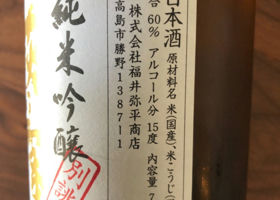 日本酒
原材料名 米(国産)、米こうじ(
合 60% アルコール分 15度 内容量 7
株式会社福井弥平商店
高島市勝野1387-1
純米吟醸
別誂